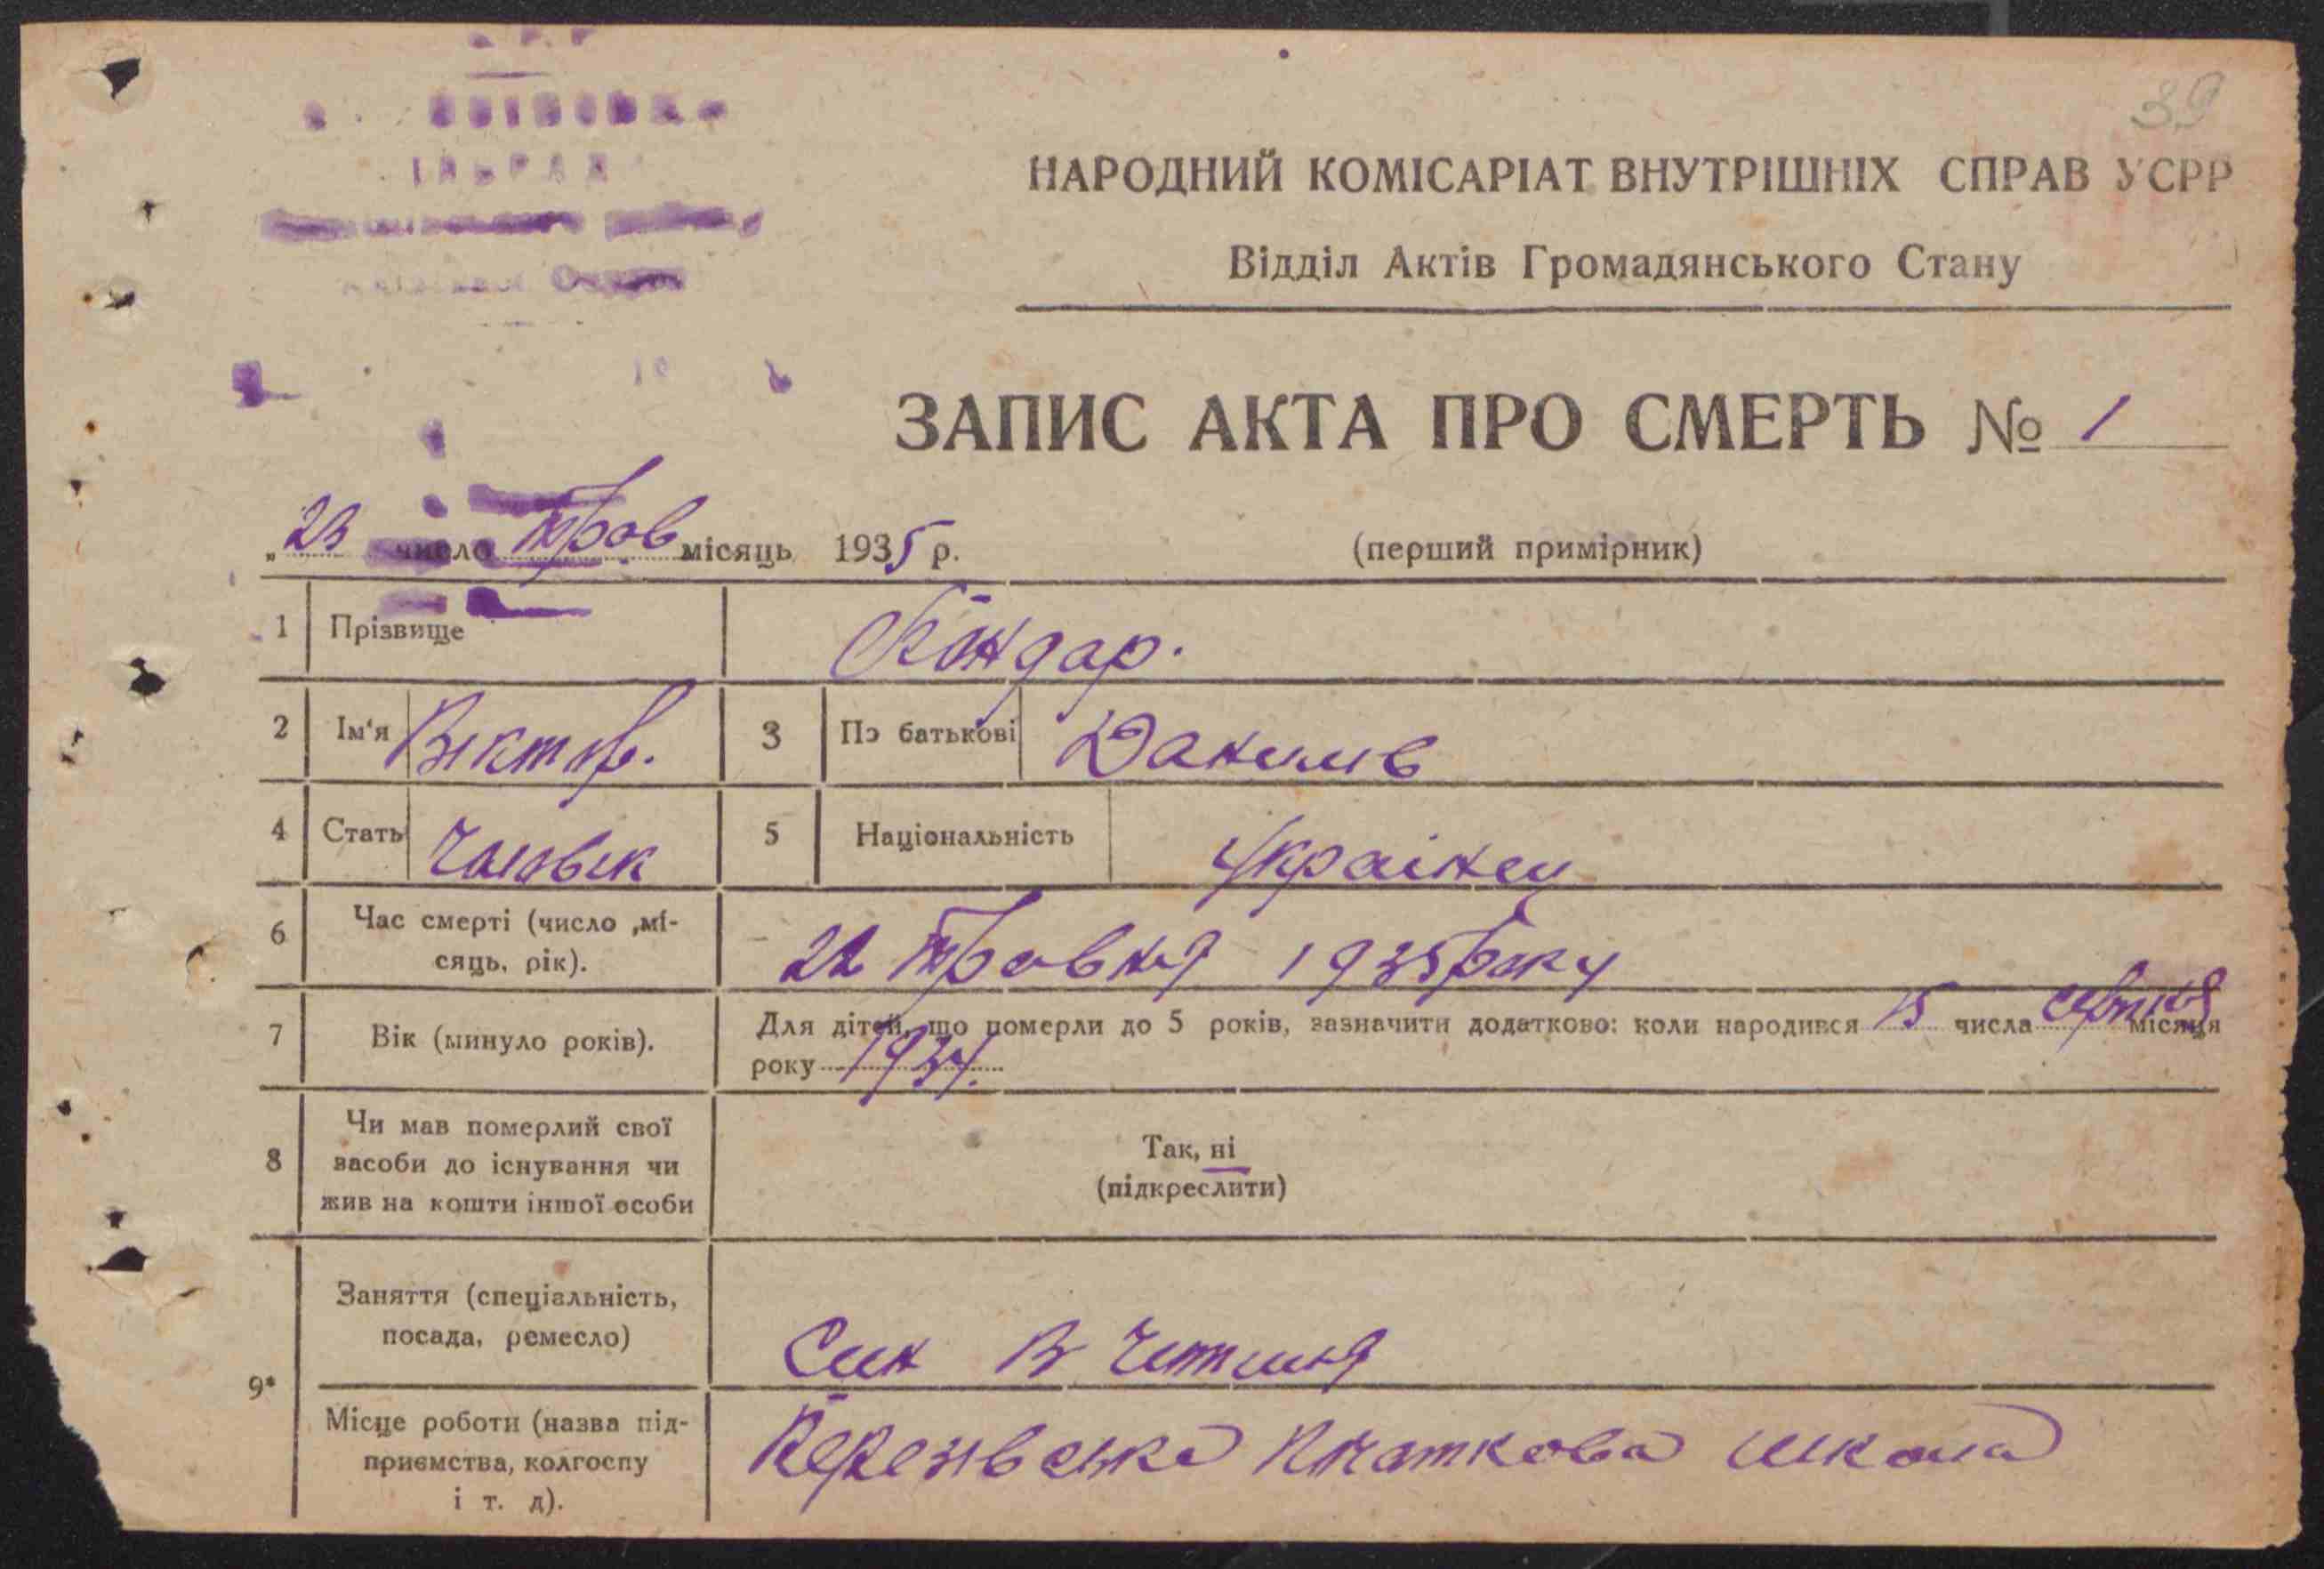 39
НАРОДНИЙ КОМІСАРІАТ ВНУТРІШНІХ СПРАВ УСРР
Відділ Актів Громадянського Стану
ЗАПИС АКТА ПРО СМЕРТЬ № 1
„23 число трав місяць 1935 р.
(перший примірник)
1 Прізвище Бондар.
2 Ім'я Віктор. 3 По батькові Данилів
4 Стать Чоловік 5 Національність Українец
6 Час смерті (число ,мі-
сяць, рік). 22 травня 1935 року
7 Вік (минуло років). Для дітей, що померли до 5 років, зазначити додатково: коли народився 15 числа серпня місяця
року 1934.
8 Чи мав померлий свої
засоби до існування чи
жив на кошти іншої особи
Так, ні
(підкреслити)
9* Заняття (спеціальність,
посада, ремесло) Син Вчителя
Місце роботи (назва під-
приємства, колгоспу
і т. д). початкова школа